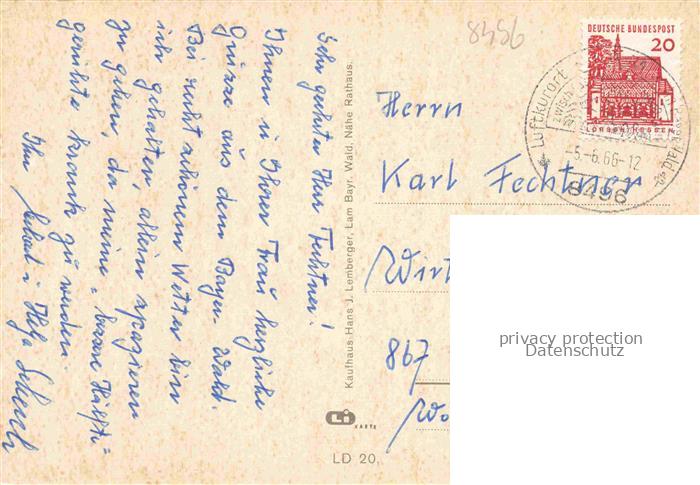 Sehr geehrter Herr Fechtner!
Ihnen u Ihrer Frau herzliche
Grüsse aus dem Bayer. Wald.
Bei recht schönem Wetter bin
ich gehalten, allein spazieren
zu gehen, da meine "bessere Hälfte"
geruhte krank zu werden.
Ihr Hel
Kaufhaus: Hans J. Lemberger, Lam Bayr. Wald, Nähe Rathaus.
Li
KARTE
LD 20,
8496
DEUTSCHE BUNDESPOST
20
LORSCH/HESSEN
Luftkurort
zwisch
Wald
-5.-6.66-12
8496
Herrn
Karl Fechtner
Wirt
867
Wo
privacy protection
Datenschutz